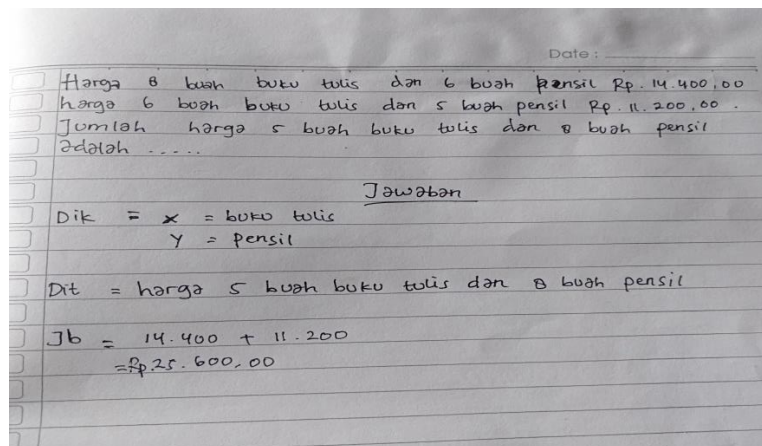 Date :
Harga 8 buah buku tulis dan 6 buah pensil Rp. 14.400,00
harga 6 buah buku tulis dan 5 buah pensil Rp. 11.200,00.
Jumlah harga 5 buah buku tulis dan 8 buah pensil
adalah .....
Jawaban
Dik = x = buku tulis
Y = Pensil
Dit = harga 5 buah buku tulis dan 8 buah pensil
Jb = 14.400 + 11.200
=Rp.25.600,00